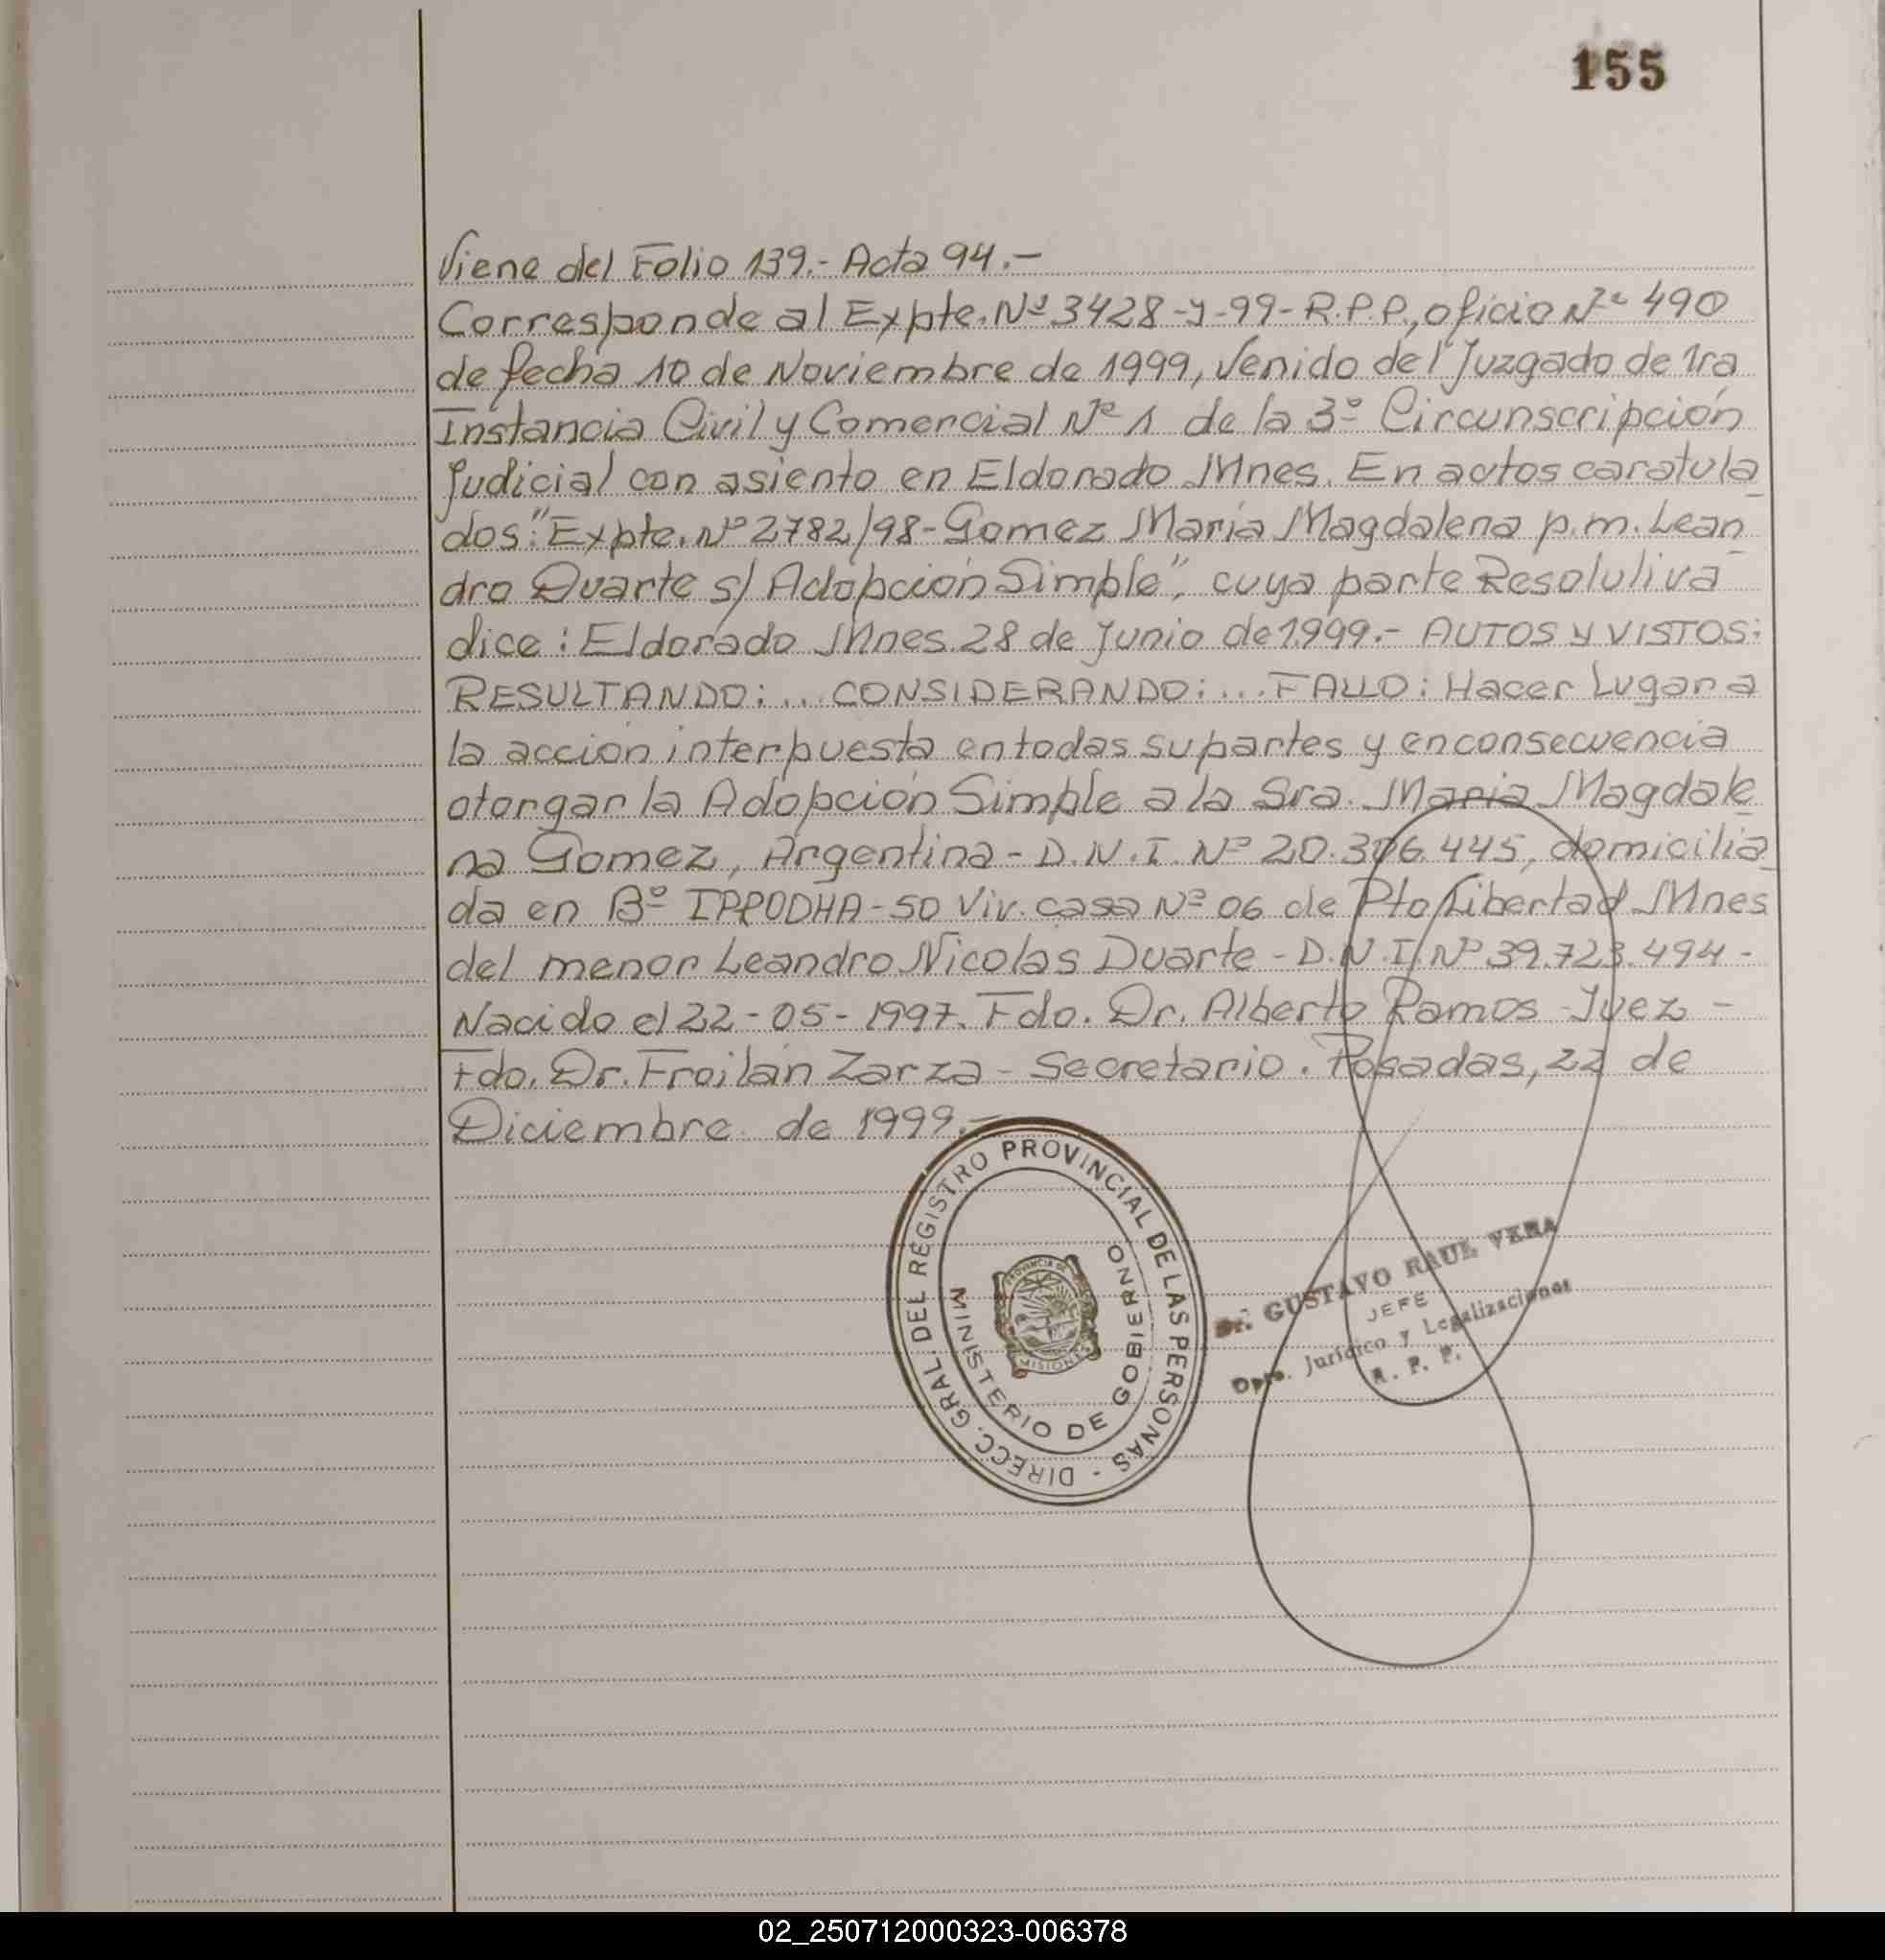 155
Viene del Folio 139.- Acta 94.-
Corresponde al Expte. Nº 3428-y-99- R.P.P., oficio Nº 490
de fecha 10 de Noviembre de 1999, Venido del Juzgado de 1ra
Instancia Civil y Comercial Nº 1 de la 3º Circunscripción
Judicial con asiento en Eldorado Mnes. En autos caratula
dos: "Expte. Nº 2782/98- Gomez María Magdalena p.m. Lean
dro Duarte s/ Adopción Simple", cuya parte Resolutiva
dice: Eldorado Mnes. 28 de Junio de 1.999.- AUTOS Y VISTOS:
RESULTANDO:... CONSIDERANDO:... FALLO: Hacer Lugar a
la acción interpuesta en todas su partes y en consecuencia
otorgar la Adopción Simple a la Sra. Maria Magdale
na Gomez, Argentina - D.N.I. Nº 20.306.445, domicilia
da en Bº IPRODHA - 50 Viv. casa Nº 06 de Pto Libertad Mnes
del menor Leandro Nicolas Duarte - D.N.I. Nº 39.723.494 -
Nacido el 22-05-1997. Fdo. Dr. Alberto Ramos - Juez -
Fdo. Dr. Froilán Zarza - Secretario. Posadas, 22 de
Diciembre de 1999.-
DIRECC. GRAL. DEL REGISTRO PROVINCIAL DE LAS PERSONAS -
MINISTERIO DE GOBIERNO
PROVINCIA DE
MISIONES
Dr. GUSTAVO RAUL VERA
JEFE
Dpto. Jurídico y Legalizaciones
R. P. P.
02_250712000323-006378